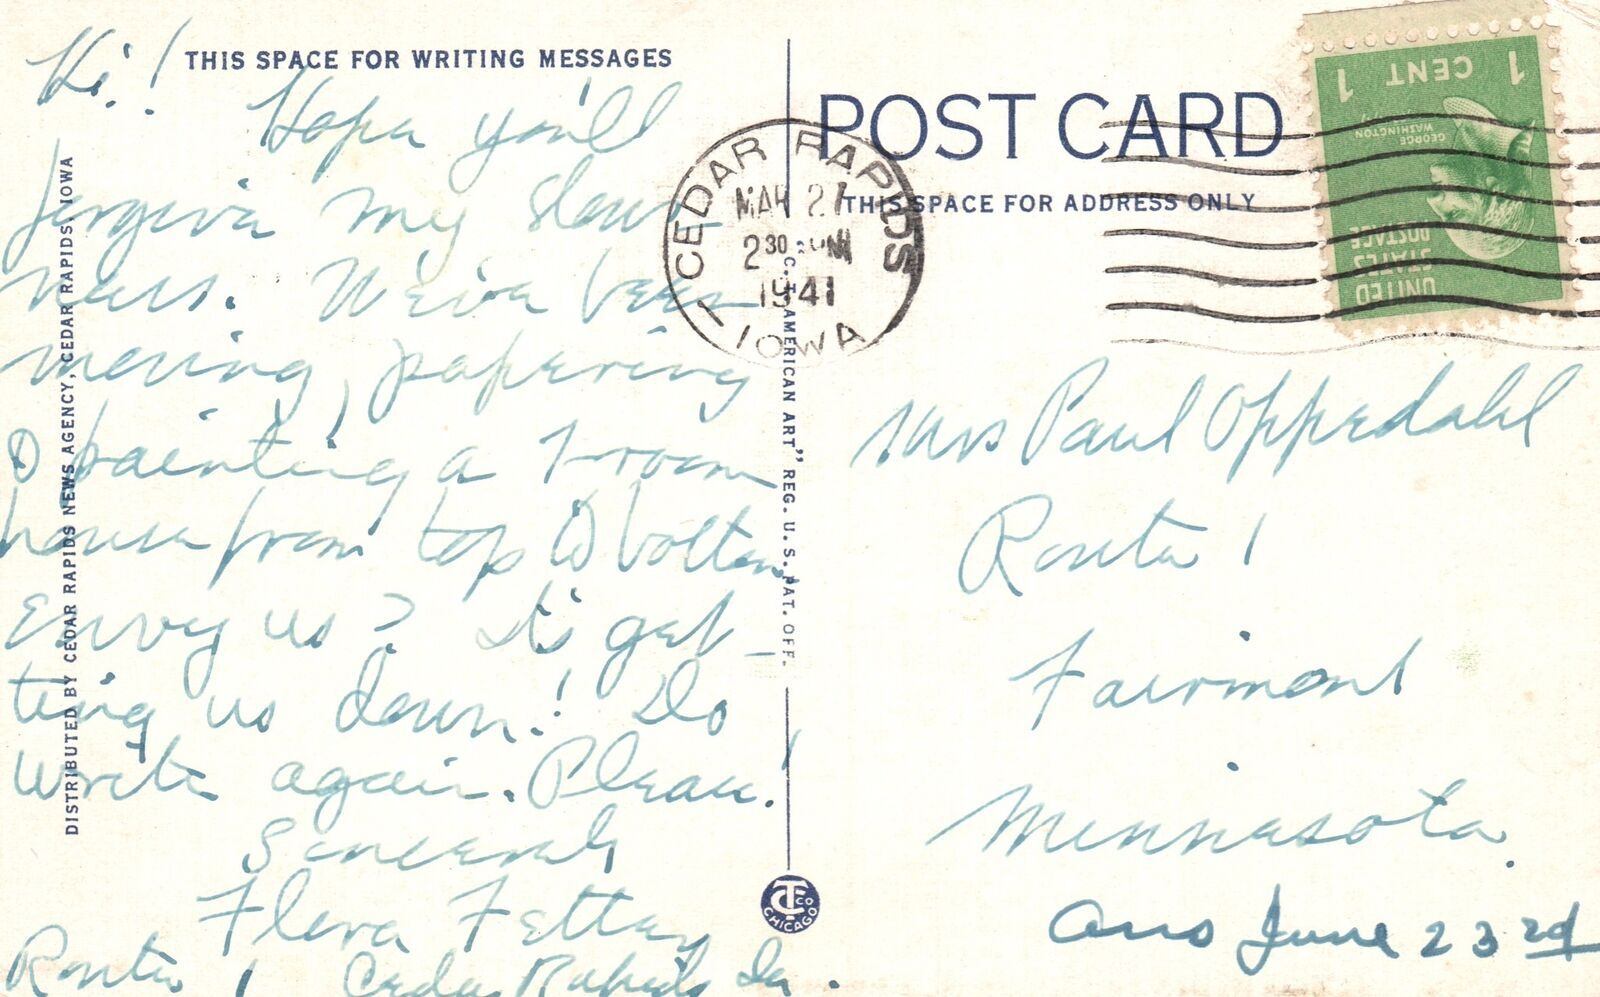 THIS SPACE FOR WRITING MESSAGES
Hi!
Hope you'll
forgive my slow-
ness. We've been
moving, papering
& painting a 7-room
house from top to bottom.
Envy us? It's get-
ting us down! Do
write again. Please!
Sincerely
Flora Fettay
Route 1 Cedar Rapids Ia.
DISTRIBUTED BY CEDAR RAPIDS NEWS AGENCY, CEDAR RAPIDS, IOWA
C.T. AMERICAN ART" REG. U.S. PAT. OFF.
CTCO
CHICAGO
POST CARD
THIS SPACE FOR ADDRESS ONLY
CEDAR RAPIDS
MAR 27
2 30 PM
1941
IOWA
1 CENT 1
GEORGE
WASHINGTON
UNITED
STATES
POSTAGE
Mrs Paul Oppedahl
Route 1
Fairmont
Minnesota.
Ans June 23rd